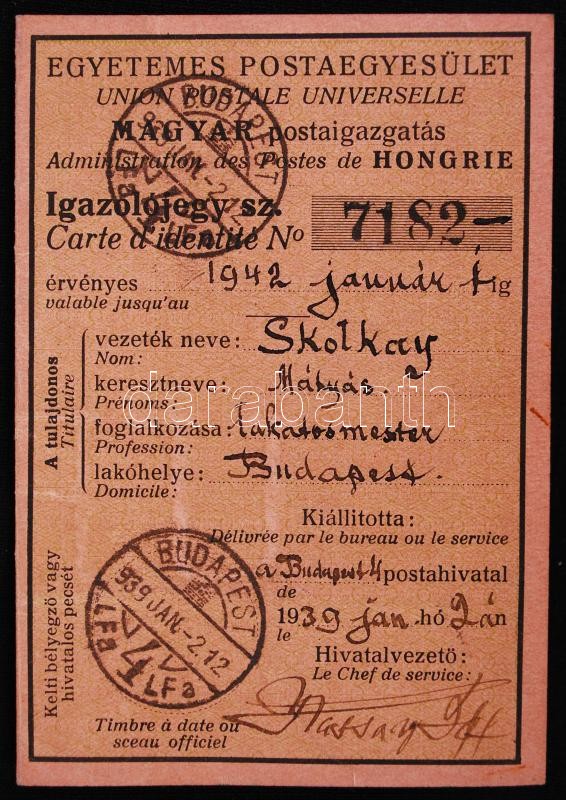 EGYETEMES POSTAEGYESÜLET
UNION POSTALE UNIVERSELLE
MAGYAR postaigazgatás
Administration des Postes de HONGRIE
Igazolójegy sz.
Carte d'identité No 7182
érvényes 1942 január 1 ig
valable jusqu'au
A tulajdonos
Titulaire
vezeték neve: Skolkay
Nom:
keresztneve: Mátyás
Prénoms:
foglalkozása: lakatosmester
Profession:
lakóhelye: Budapest.
Domicile:
Kiállitotta:
Délivrée par le bureau ou le service
a Budapest 4 postahivatal
de
1939 jan. hó 2 án
le
Hivatalvezető:
Le Chef de service:
Kelti bélyegző vagy
hivatalos pecsét
Timbre à date ou
sceau officiel
BUDAPEST
939 JAN.-2.12
4
LFa
LFa
BUDAPEST
939 JAN.-2.12
4
LFa
LFa
darabanth